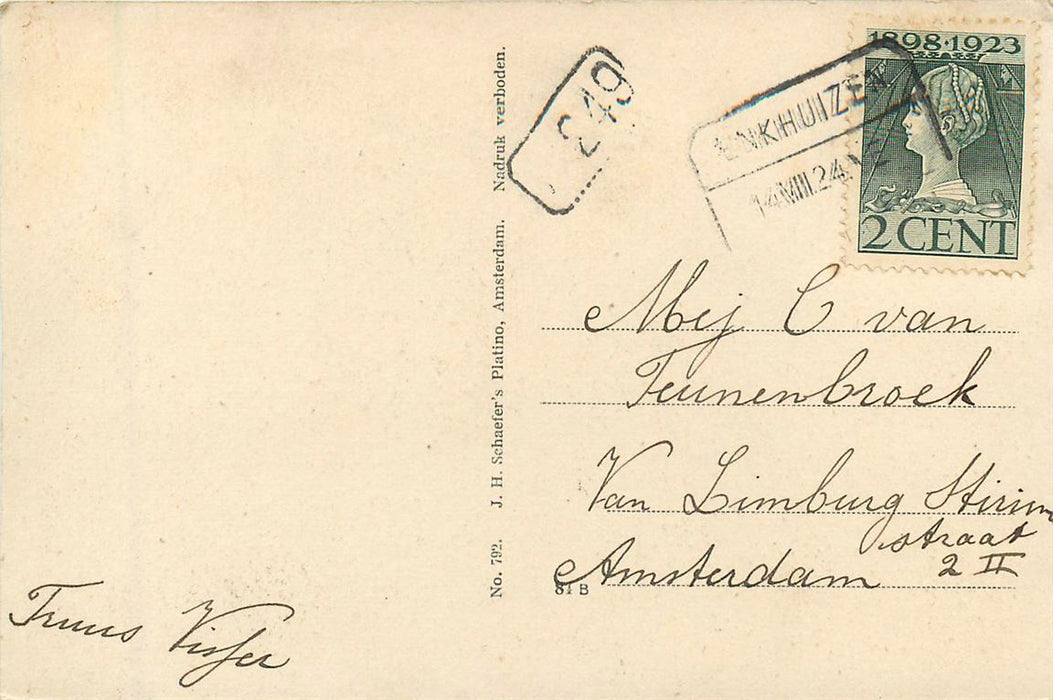 1898·1923
2 CENT
ENKHUIZEN
14.VIII.24
249
No. 792. J. H. Schaefer's Platino, Amsterdam. Nadruk verboden.
Mej C van
Teunenbroek
Van Limburg Stirum
straat
2 II
Amsterdam
84 B
Truus Visser